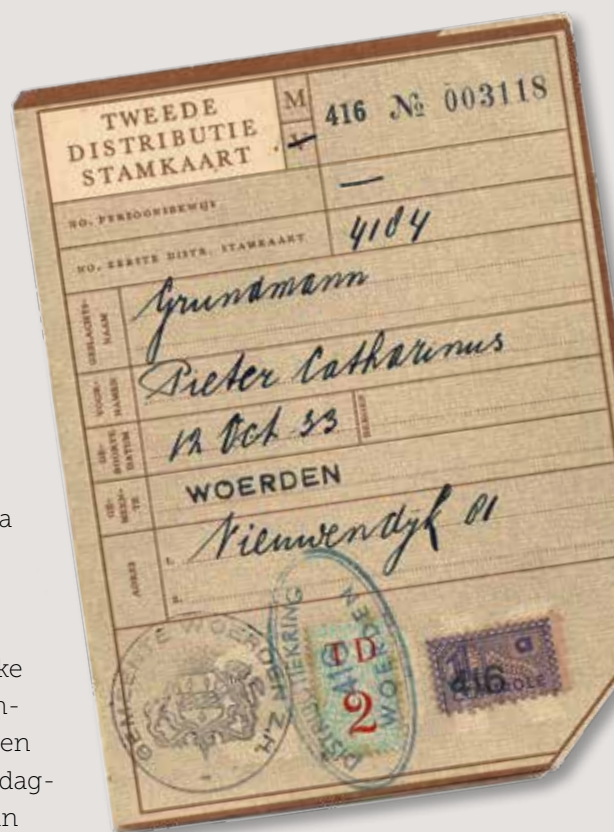 TWEEDE
DISTRIBUTIE
STAMKAART
M
V
416 № 003118
NO. PERSOONSBEWIJS —
NO. EERSTE DISTR. STAMKAART 4184
GESLACHTS-
NAAM
Grundmann
VOOR-
NAMEN
Pieter Catharinus
GE-
BOORTE-
DATUM
12 Oct 33
BEROEP
GE-
MEEN-
TE
WOERDEN
ADRES
1.
Nieuwendijk 81
2.
GEMEENTE WOERDEN Z.H.
DISTRIBUTIEKRING
WOERDEN
416
TD
2
a
416
a
ke
n-
en
dag-
in